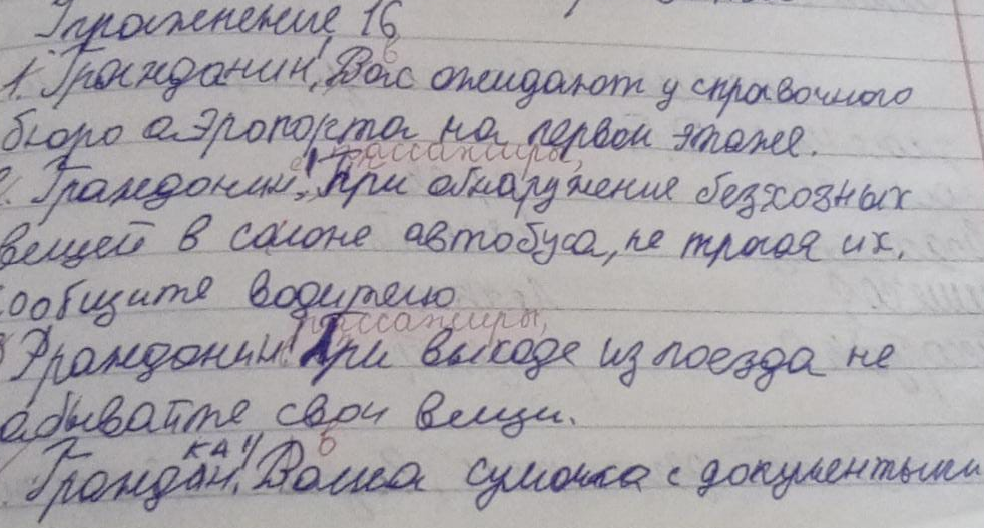 Упражнение 16
1. Гражданин, Вас ожидают у справочного
бюро аэропорта на первом этаже.
пассажиры,
Граждани! При обнаружение безхозных
вещей в салоне автобуса, не трогая их,
сообщите водителю
пассажиры,
Граждании! При выходе из поезда не
абывайте свои вещи.
ка!
Граждан, Ваша сумочка с документыми